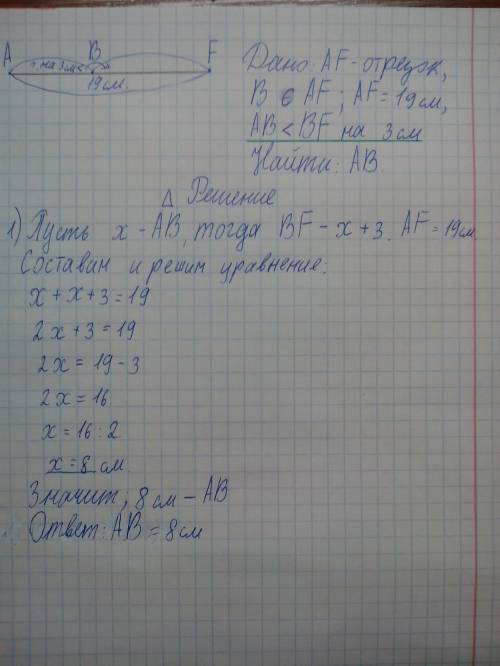 A B F
? на 3 см <
19 см.
Дано: AF - отрезок,
B ∈ AF; AF = 19 см,
AB < BF на 3 см
Найти: AB.
△ Решение
1) Пусть x - AB, тогда BF - x + 3. AF = 19 см.
Составим и решим уравнение:
x + x + 3 = 19
2x + 3 = 19
2x = 19 - 3
2x = 16
x = 16 : 2
x = 8 см.
Значит, 8 см - AB
Ответ: AB = 8 см